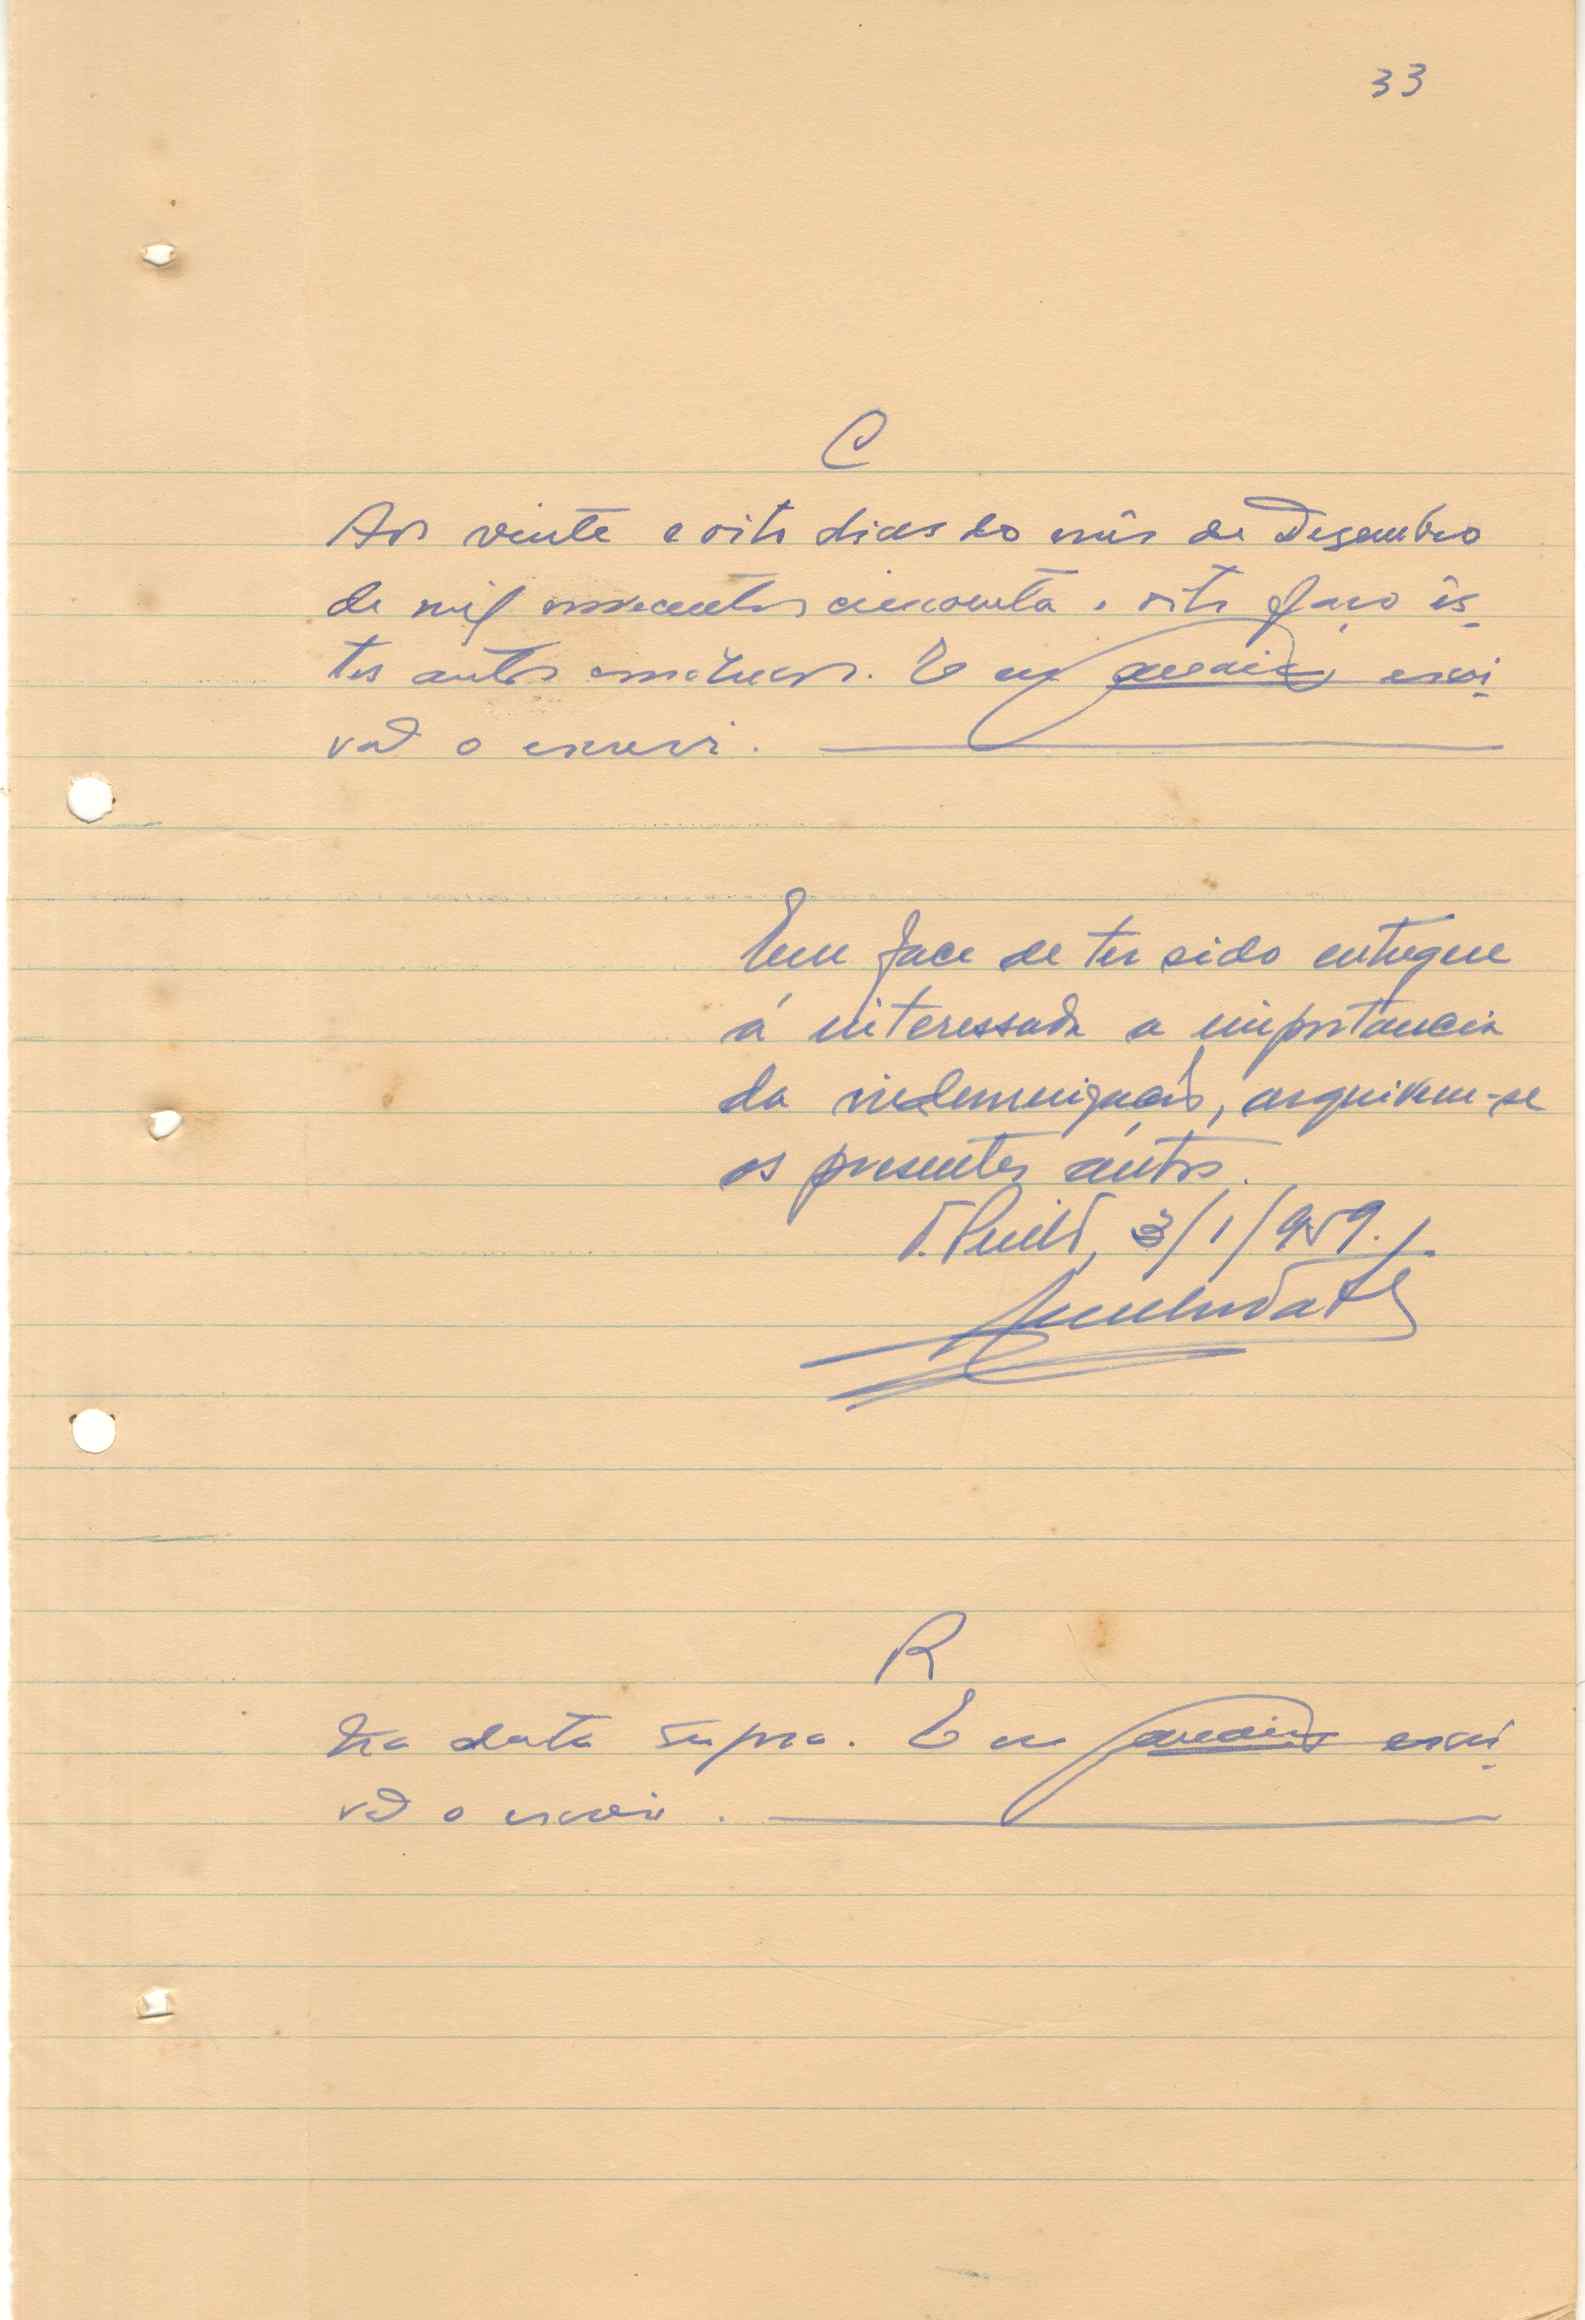 33
C
Aos vinte e oito dias do mês de Dezembro
de mil novecentos cincoenta e oito faço ês-
tes autos conclusos. E eu escri-
vão o escrevi.
Em face de ter sido entregue
á interessada a importancia
da indemnização, arquivem-se
os presentes autos.
3/1/959.
R
Na data supra. E eu escri-
vão o escrevi.